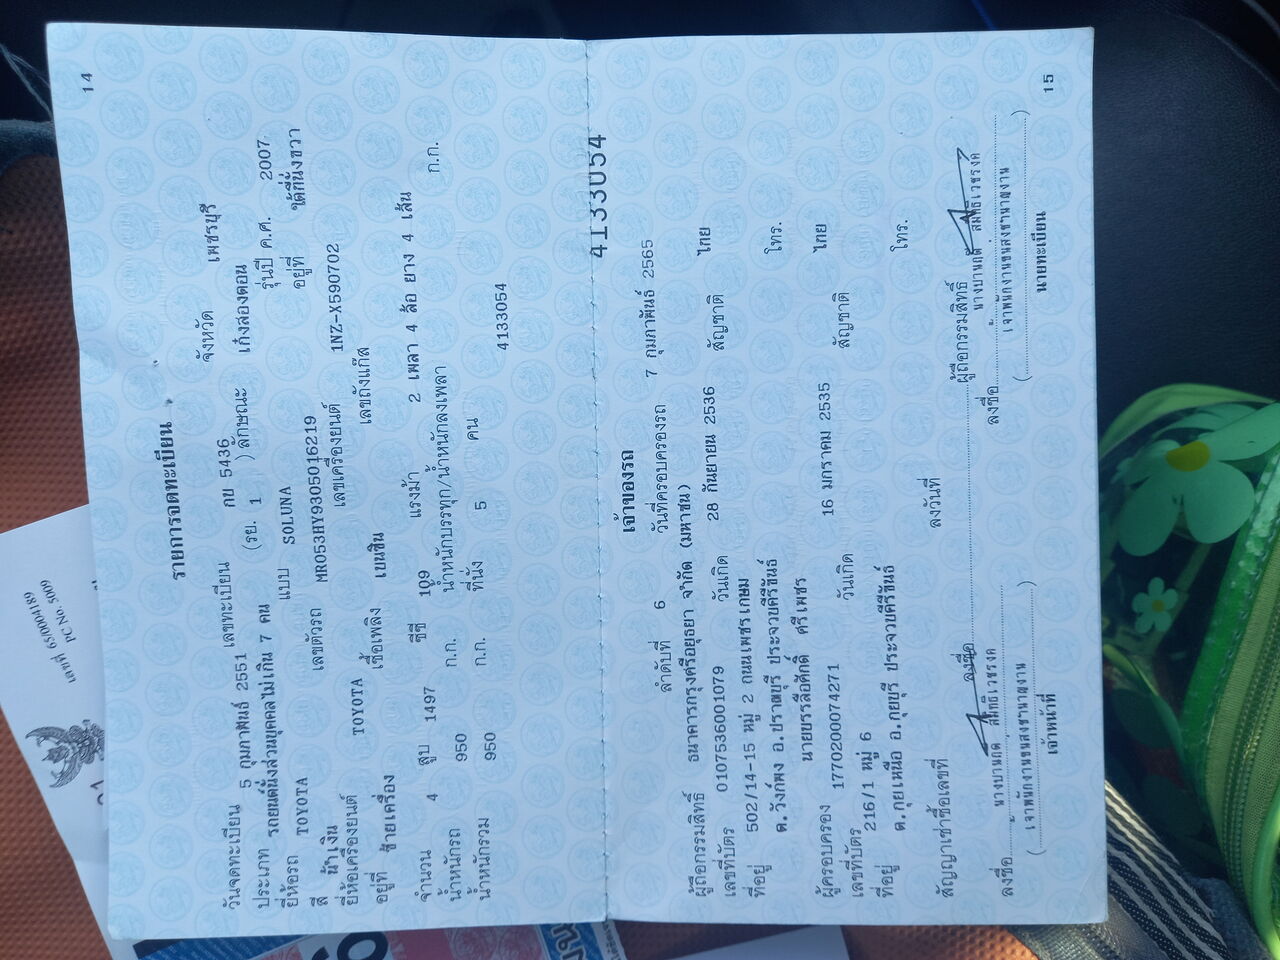 14
รายการจดทะเบียน
วันจดทะเบียน 5 กุมภาพันธ์ 2551 เลขทะเบียน กบ 5436 จังหวัด เพชรบุรี
ประเภท รถยนต์นั่งส่วนบุคคลไม่เกิน 7 คน (รย. 1 ) ลักษณะ เก๋งสองตอน
ยี่ห้อรถ TOYOTA แบบ SOLUNA รุ่นปี ค.ศ. 2007
สี น้ำเงิน เลขตัวรถ MR053HY9305016219 อยู่ที่ ใต้ที่นั่งขวา
ยี่ห้อเครื่องยนต์ TOYOTA เลขเครื่องยนต์ 1NZ-X590702
อยู่ที่ ซ้ายเครื่อง เชื้อเพลิง เบนซิน เลขถังแก๊ส
จำนวน 4 สูบ 1497 ซีซี 109 แรงม้า 2 เพลา 4 ล้อ ยาง 4 เส้น
น้ำหนักรถ 950 ก.ก. น้ำหนักบรรทุก/น้ำหนักลงเพลา ก.ก.
น้ำหนักรวม 950 ก.ก. ที่นั่ง 5 คน
4133054
4133054
เจ้าของรถ
ลำดับที่ 6 วันที่ครอบครองรถ 7 กุมภาพันธ์ 2565
ผู้ถือกรรมสิทธิ์ ธนาคารกรุงศรีอยุธยา จำกัด (มหาชน)
เลขที่บัตร 0107536001079 วันเกิด 28 กันยายน 2536 สัญชาติ ไทย
ที่อยู่ 502/14-15 หมู่ 2 ถนนเพชรเกษม
ต.วังก์พง อ.ปราณบุรี ประจวบคีรีขันธ์ โทร.
ผู้ครอบครอง นายบรรลือศักดิ์ ศรีเพชร
เลขที่บัตร 1770200074271 วันเกิด 16 มกราคม 2535 สัญชาติ ไทย
ที่อยู่ 216/1 หมู่ 6
ต.กุยเหนือ อ.กุยบุรี ประจวบคีรีขันธ์ โทร.
สัญญาเช่าซื้อเลขที่ ลงวันที่
ลงชื่อ ผู้ถือกรรมสิทธิ์
ลงชื่อ ลงชื่อ
(เจ้าพนักงานขนส่งชำนาญงาน) (เจ้าพนักงานขนส่งชำนาญงาน)
เจ้าหน้าที่ นายทะเบียน
15
เลขที่ 65/0004189
PC No. 5009